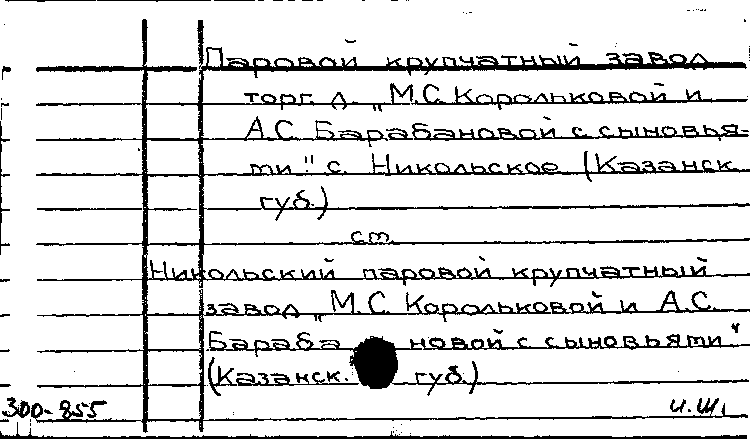 Паровой крупчатный завод
торг. д. „М.С. Корольковой и
А.С. Барабановой с сыновья-
ти" с. Никольское (Казанск.
губ.)
ст.
Никольский паровой крупчатный
завод „М.С. Корольковой и А.С.
Бараба новой с сыновьяти"
(Казанск. губ.)
300-855 и.Ш.